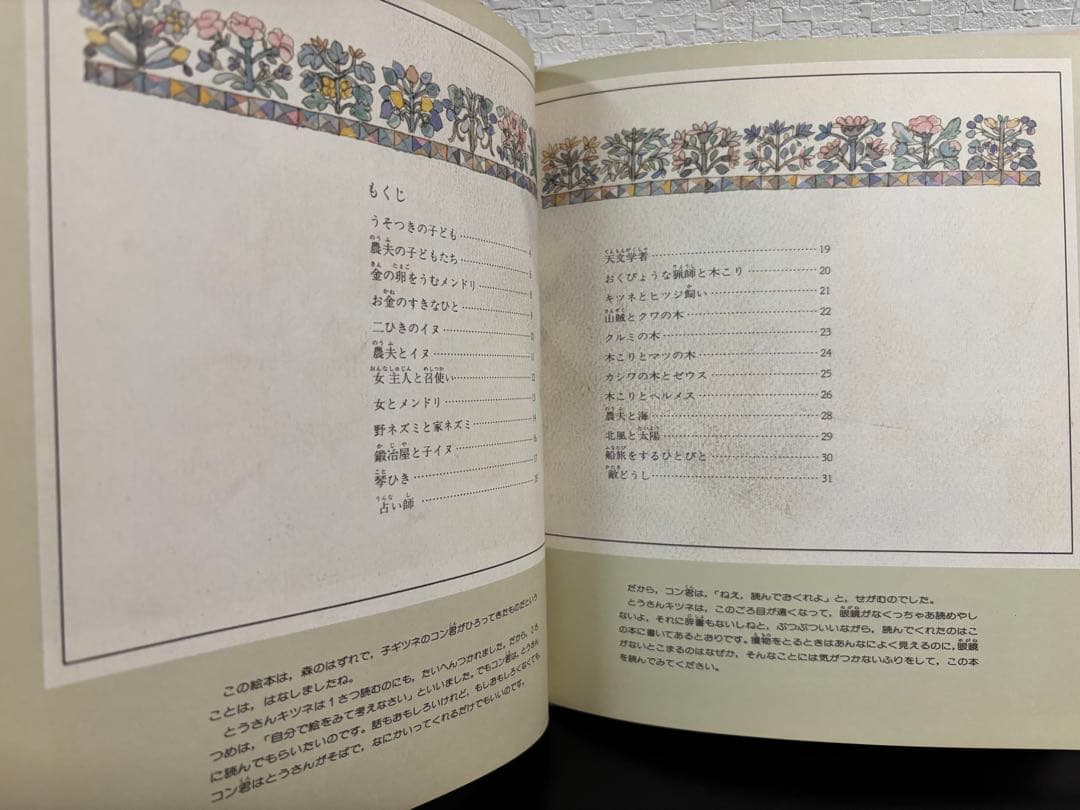 もくじ
うそつきの子ども…………4
農夫の子どもたち…………6
金の卵をうむメンドリ…………8
お金のすきなひと…………9
二ひきのイヌ…………10
農夫とイヌ…………11
女主人と召使い…………12
女とメンドリ…………13
野ネズミと家ネズミ…………14
鍛冶屋と子イヌ…………16
琴ひき…………17
占い師…………18
この絵本は，森のはずれで，子ギツネのコン君がひろってきたものだという
ことは，はなしましたね。
とうさんキツネは1さつ読むのにも，たいへんつかれました。だから，2さ
つめは，「自分で絵をみて考えなさい」といいました。でもコン君は，とうさん
に読んでもらいたいのです。話もおもしろいけれど，もしおもしろくなくても，
コン君はとうさんがそばで，なにかいってくれるだけでもいいのです。
天文学者…………19
おくびょうな猟師と木こり…………20
キツネとヒツジ飼い…………21
山賊とクワの木…………22
クルミの木…………23
木こりとマツの木…………24
カシワの木とゼウス…………25
木こりとヘルメス…………26
農夫と海…………28
北風と太陽…………29
船旅をするひとびと…………30
敵どうし…………31
だから，コン君は，「ねえ，読んでおくれよ」と，せがむのでした。
とうさんキツネは，このごろ目が遠くなって，眼鏡がなくっちゃあ読めやし
ないよ，それに辞書もないしねと，ぶつぶついいながら，読んでくれたのはこ
の本に書いてあるとおりです。獲物をとるときはあんなによく見えるのに，眼鏡
がないとこまるのはなぜか，そんなことには気がつかないふりをして，この本
を読んでみてください。